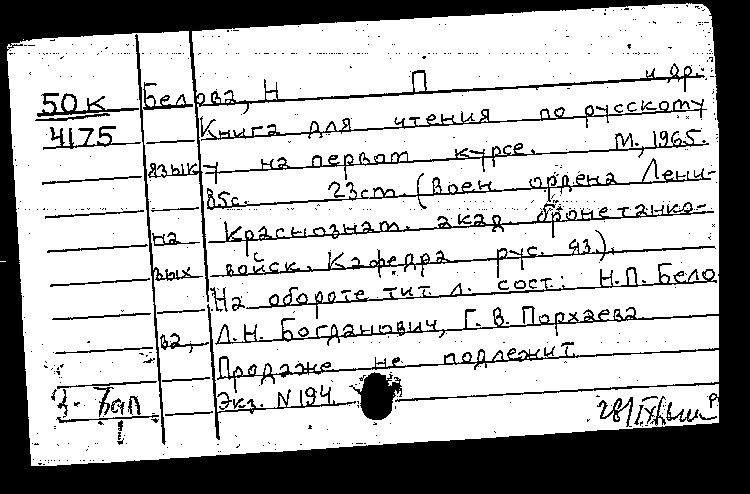 50К Белова, Н П и др.
4175 Книга для чтения по русскому
языку на первом курсе. М., 1965.
85с. 23cm. (Воен ордена Лени-
на Краснознам. акад. бронетанко-
вых войск. Кафедра рус. яз.).
На обороте тит. л. сост: Н.П. Бело
ва, Л.Н. Богданович, Г.В. Пархаева
Продаже не подлежит
Экз. N 194.